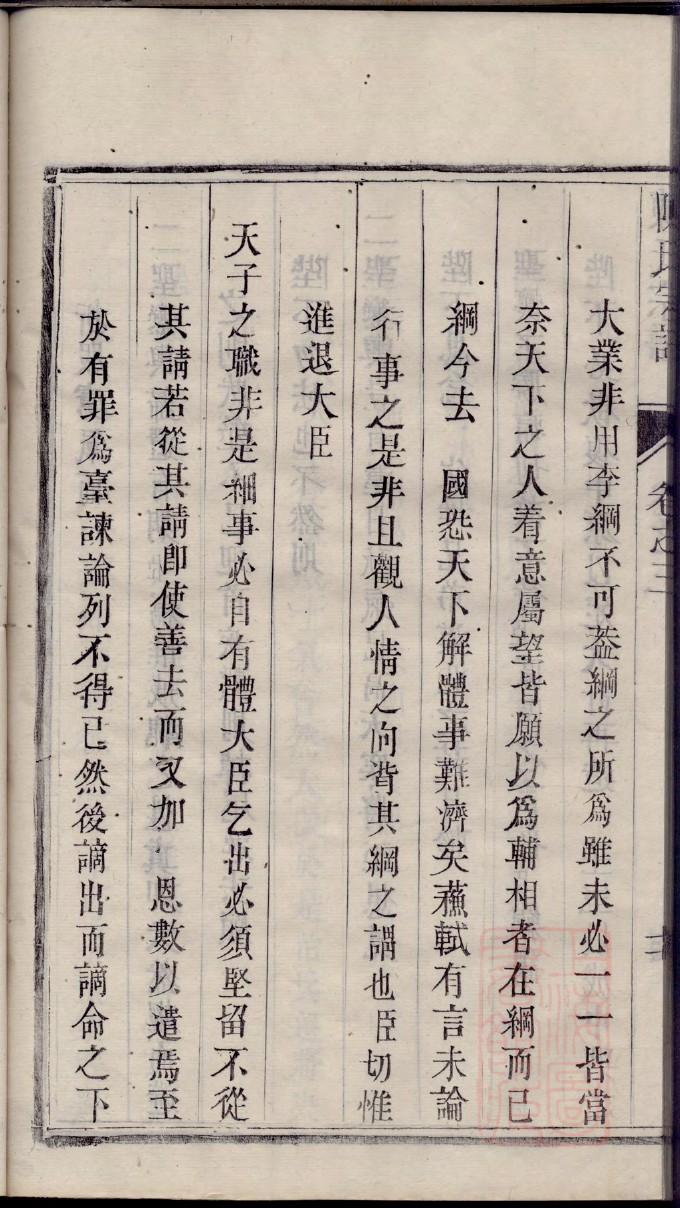 陳氏宗譜 卷之三
大業非用李綱不可葢綱之所爲雖未必一一皆當
奈天下之人着意屬望皆願以爲輔相者在綱而已
綱今去 國恐天下解體事難濟矣蘓軾有言未論
行事之是非且觀人情之向背其綱之謂也臣切惟
進退大臣
天子之職非是細事必自有體大臣乞出必須堅留不從
其請若從其請卽使善去而又加 恩數以遣焉至
於有罪爲臺諫論列不得已然後謫出而謫命之下